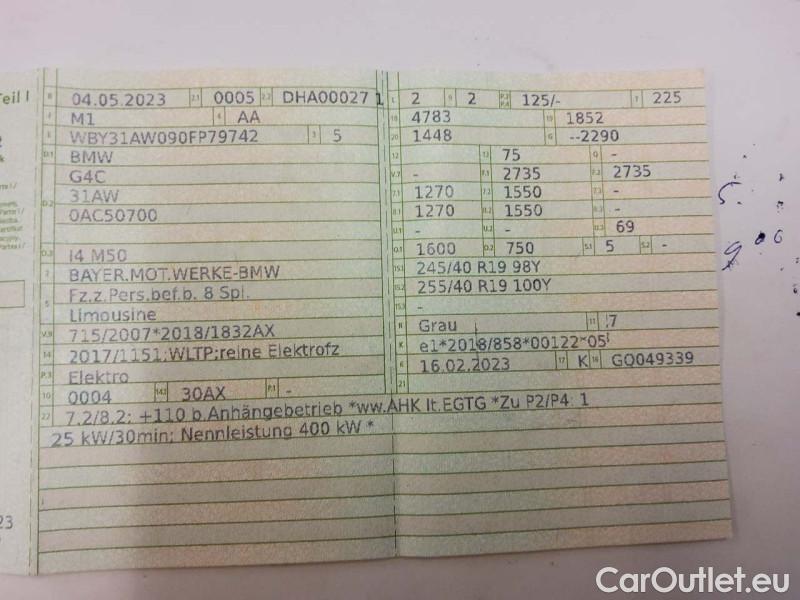 Teil I
B 04.05.2023 2.1 0005 2.2 DHA00027 1
J M1 4 AA
E WBY31AW090FP79742 3 5
D.1 BMW
G4C
D.2 31AW
0AC50700
D.3 I4 M50
2 BAYER.MOT.WERKE-BMW
5 Fz.z.Pers.bef.b. 8 Spl.
Limousine
V.9 715/2007*2018/1832AX
14 2017/1151;WLTP;reine Elektrofz
P.3 Elektro
10 0004 14.1 30AX P.1 -
22 7.2/8.2: +110 b.Anhängebetrieb *ww.AHK lt.EGTG *Zu P2/P4: 1
25 kW/30min; Nennleistung 400 kW *
L 2 9 2 P.2 P.4 125/- T 225
18 4783 19 1852
20 1448 G --2290
12 - 13 75 Q -
V.7 - F.1 2735 F.2 2735
7.1 1270 7.2 1550 7.3 -
8.1 1270 8.2 1550 8.3 -
U.1 - U.2 - U.3 69
O.1 1600 O.2 750 S.1 5 S.2 -
15.1 245/40 R19 98Y
15.2 255/40 R19 100Y
15.3 -
R Grau 11 7
K e1*2018/858*00122*05
6 16.02.2023 17 K 16 GQ049339
21
23
CarOutlet.eu